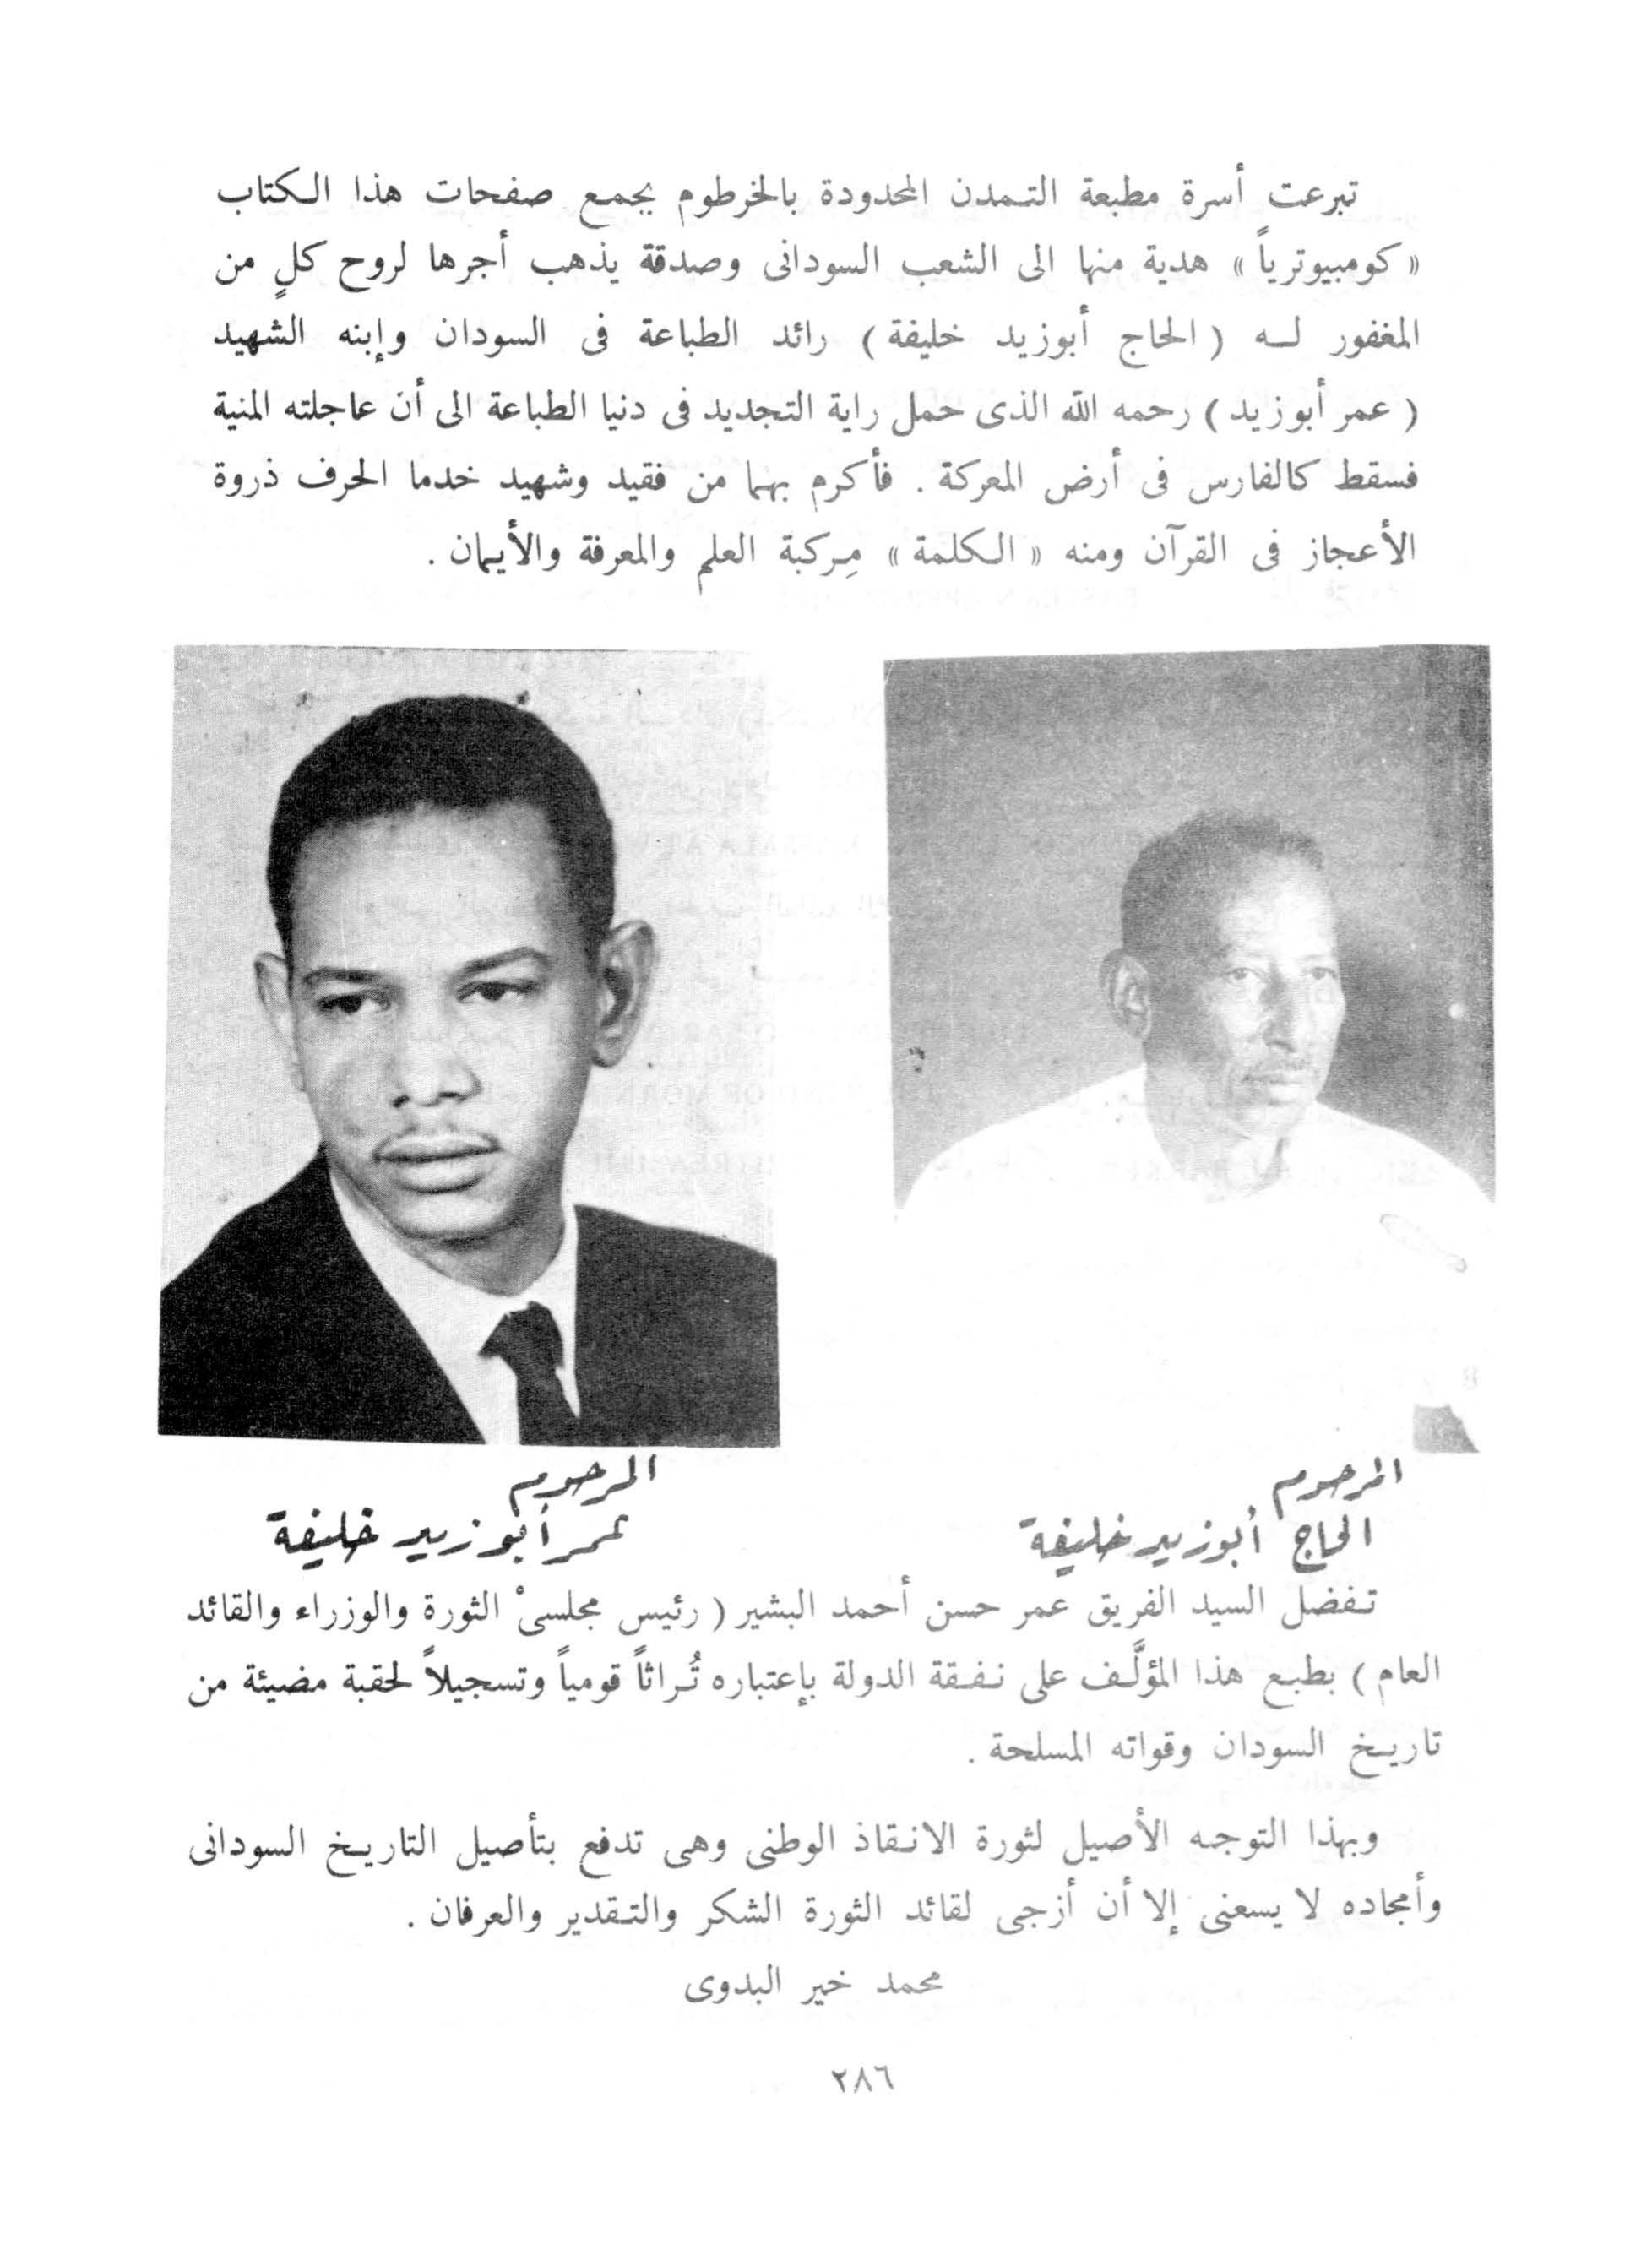 تبرعت أسرة مطبعة التمدن المحدودة بالخرطوم بجمع صفحات هذا الكتاب
« كومبيوترياً » هدية منها الى الشعب السودانى وصدقة يذهب أجرها لروح كلٍ من
المغفور لـه ( الحاج أبوزيد خليفة ) رائد الطباعة فى السودان وإبنه الشهيد
( عمر أبوزيد ) رحمه الله الذى حمل راية التجديد فى دنيا الطباعة الى أن عاجلته المنية
فسقط كالفارس فى أرض المعركة . فأكرم بهما من فقيد وشهيد خدما الحرف ذروة
الأعجاز فى القرآن ومنه « الكلمة » مِركبة العلم والمعرفة والأيمان .
المرحوم
الحاج أبوزيد خليفة
المرحوم
عمر أبوزيد خليفة
تفضل السيد الفريق عمر حسن أحمد البشير ( رئيس مجلسىْ الثورة والوزراء والقائد
العام ) بطبع هذا المؤلَّف على نفقة الدولة بإعتباره تُراثاً قومياً وتسجيلاً لحقبة مضيئة من
تاريخ السودان وقواته المسلحة .
وبهذا التوجه الأصيل لثورة الانقاذ الوطنى وهى تدفع بتأصيل التاريخ السودانى
وأمجاده لا يسعنى إلا أن أزجى لقائد الثورة الشكر والتقدير والعرفان .
محمد خير البدوى
٢٨٦